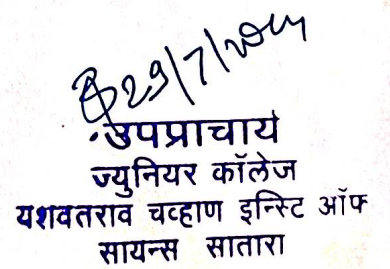 29/7/
उपप्राचार्य
ज्युनियर कॉलेज
यशवतराव चव्हाण इन्स्टि ऑफ
सायन्स सातारा